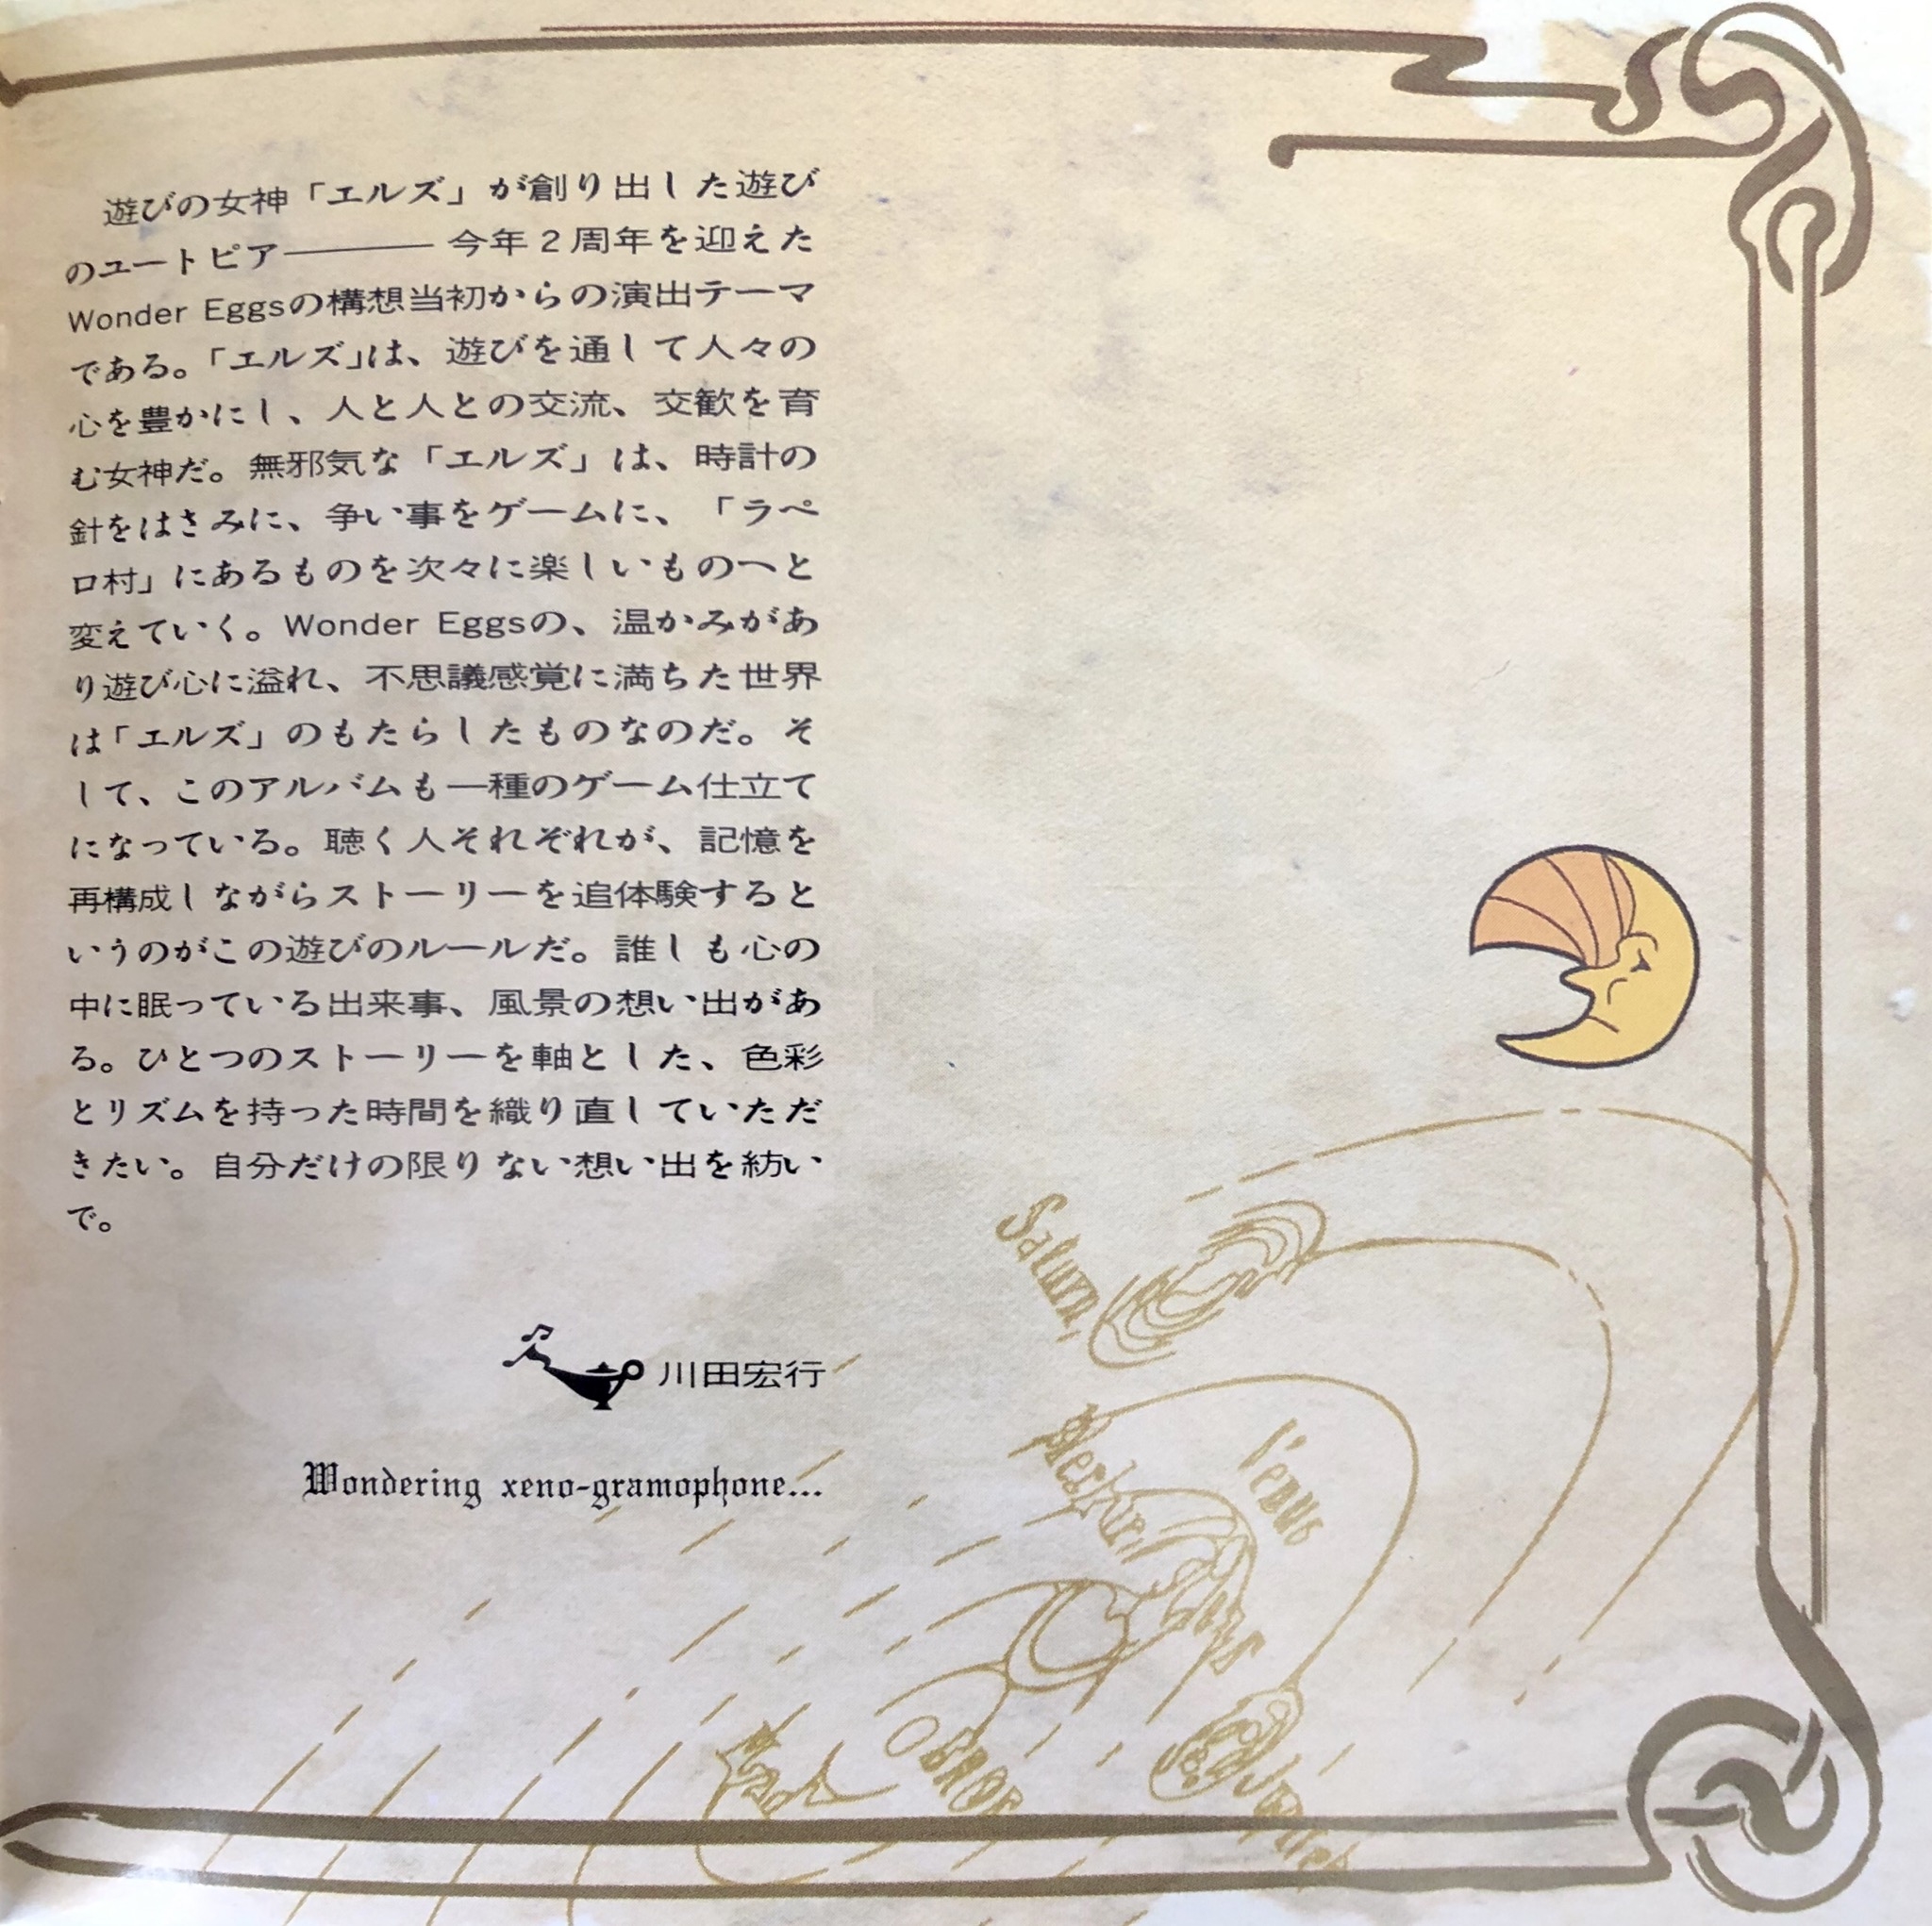 遊びの女神「エルズ」が創り出した遊び
のユートピア――― 今年2周年を迎えた
Wonder Eggsの構想当初からの演出テーマ
である。「エルズ」は、遊びを通して人々の
心を豊かにし、人と人との交流、交歓を育
む女神だ。無邪気な「エルズ」は、時計の
針をはさみに、争い事をゲームに、「ラペ
ロ村」にあるものを次々に楽しいものへと
変えていく。Wonder Eggsの、温かみがあ
り遊び心に溢れ、不思議感覚に満ちた世界
は「エルズ」のもたらしたものなのだ。そ
して、このアルバムも一種のゲーム仕立て
になっている。聴く人それぞれが、記憶を
再構成しながらストーリーを追体験すると
いうのがこの遊びのルールだ。誰しも心の
中に眠っている出来事、風景の想い出があ
る。ひとつのストーリーを軸とした、色彩
とリズムを持った時間を織り直していただ
きたい。自分だけの限りない想い出を紡い
で。
川田宏行
Wondering xeno-gramophone...
Saturn
Venus